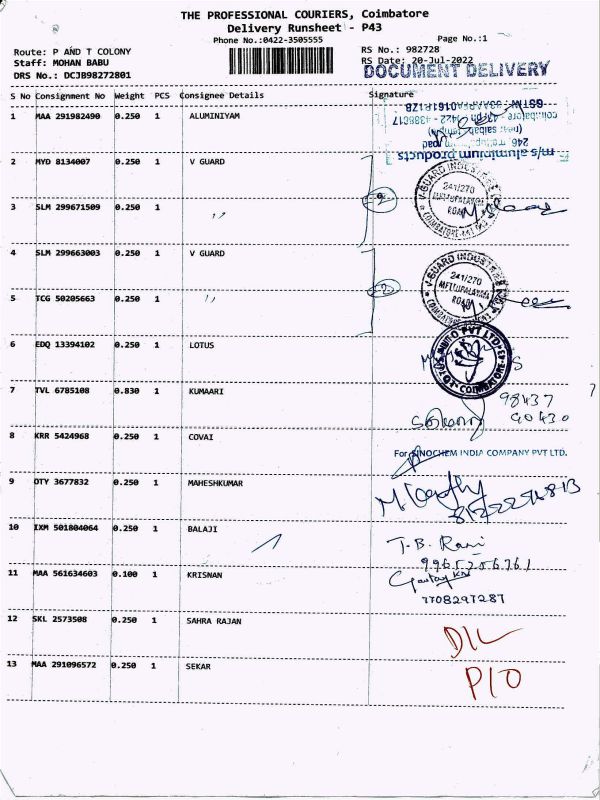 THE PROFESSIONAL COURIERS, Coimbatore
Delivery Runsheet - P43
Phone No.:0422-3505555
Page No.:1
Route: P AND T COLONY
RS No.: 982728
Staff: MOHAN BABU
RS Date: 20-Jul-2022
DRS No.: DCJB98272801
DOCUMENT DELIVERY
S No Consignment No Weight PCS Consignee Details Signature
1 MAA 291982490 0.250 1 ALUMINIYAM
m/s aluminium products
2 MYD 8134007 0.250 1 V GUARD
V-GUARD INDUSTRIES
241/270
METTUPALAYAM
ROAD
3 SLM 299671509 0.250 1 ,,
4 SLM 299663003 0.250 1 V GUARD
V-GUARD INDUSTRIES
241/270
METTUPALAYAM
ROAD
5 TCG 50205663 0.250 1 ,,
6 EDQ 13394102 0.250 1 LOTUS
7 TVL 6785108 0.830 1 KUMAARI
98437
90430
8 KRR 5424968 0.250 1 COVAI
For SINOCHEM INDIA COMPANY PVT LTD.
9 OTY 3677832 0.250 1 MAHESHKUMAR
10 IXM 501804064 0.250 1 BALAJI
T.B. Rani
9965256761
11 MAA 561634603 0.100 1 KRISNAN
7708297287
12 SKL 2573508 0.250 1 SAHRA RAJAN
D/L
13 MAA 291096572 0.250 1 SEKAR
P/O